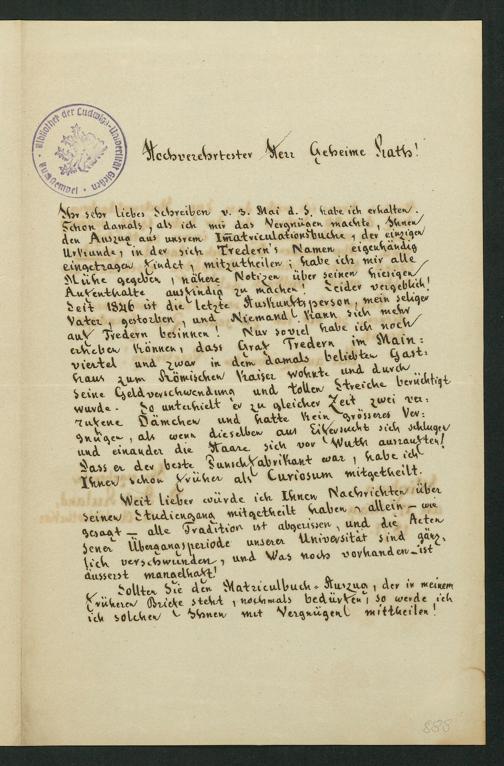 Bibliothek der Ludwigs-Universität Giessen
Hochverehrtester Herr Geheime Rath!
Ihr sehr liebes Schreiben v. 3. Mai d. J. habe ich erhalten.
Schon damals, als ich mir das Vergnügen machte, Ihnen
den Auszug aus unsrem Im̅atriculationsbuche, der einzigen
Urkunde, in der sich Tredern's Namen eigenhändig
eingetragen findet, mitzutheilen; habe ich mir alle
Mühe gegeben, nähere Notizen über seinen hiesigen
Aufenthalte ausfindig zu machen! Leider vergeblich!
Seit 1846 ist die letzte Auskunftsperson, mein seliger
Vater, gestorben, und Niemand kann sich mehr
auf Tredern besinnen! Nur soviel habe ich noch
erheben können, dass Graf Tredern im Main=
viertel und zwar in dem damals beliebten Gast=
haus zum Römischen Kaiser wohnte und durch
seine Geldverschwendung und tollen Streiche berüchtigt
wurde. So unterhielt er zu gleicher Zeit zwei ver=
rufene Dämchen und hatte kein grösseres Ver=
gnügen, als wenn dieselben aus Eifersucht sich schlugen
und einander die Haare sich vor Wuth ausrauften!
Dass er der beste Punschfabrikant war, habe ich
Ihnen schon früher als Curiosum mitgetheilt.
Weit lieber würde ich Ihnen Nachrichten über
seinen Studiengang mitgetheilt haben, allein – wie
gesagt – alle Tradition ist abgerissen, und die Acten
jener Übergangsperiode unserer Universität sind gänz=
lich verschwunden, und Was noch vorhanden – ist
äusserst mangelhaft!
Sollten Sie den Matriculbuch=Auszug, der in meinem
früheren Briefe steht, nochmals bedürfen; so werde ich
ich solchen Ihnen mit Vergnügen mittheilen!
888